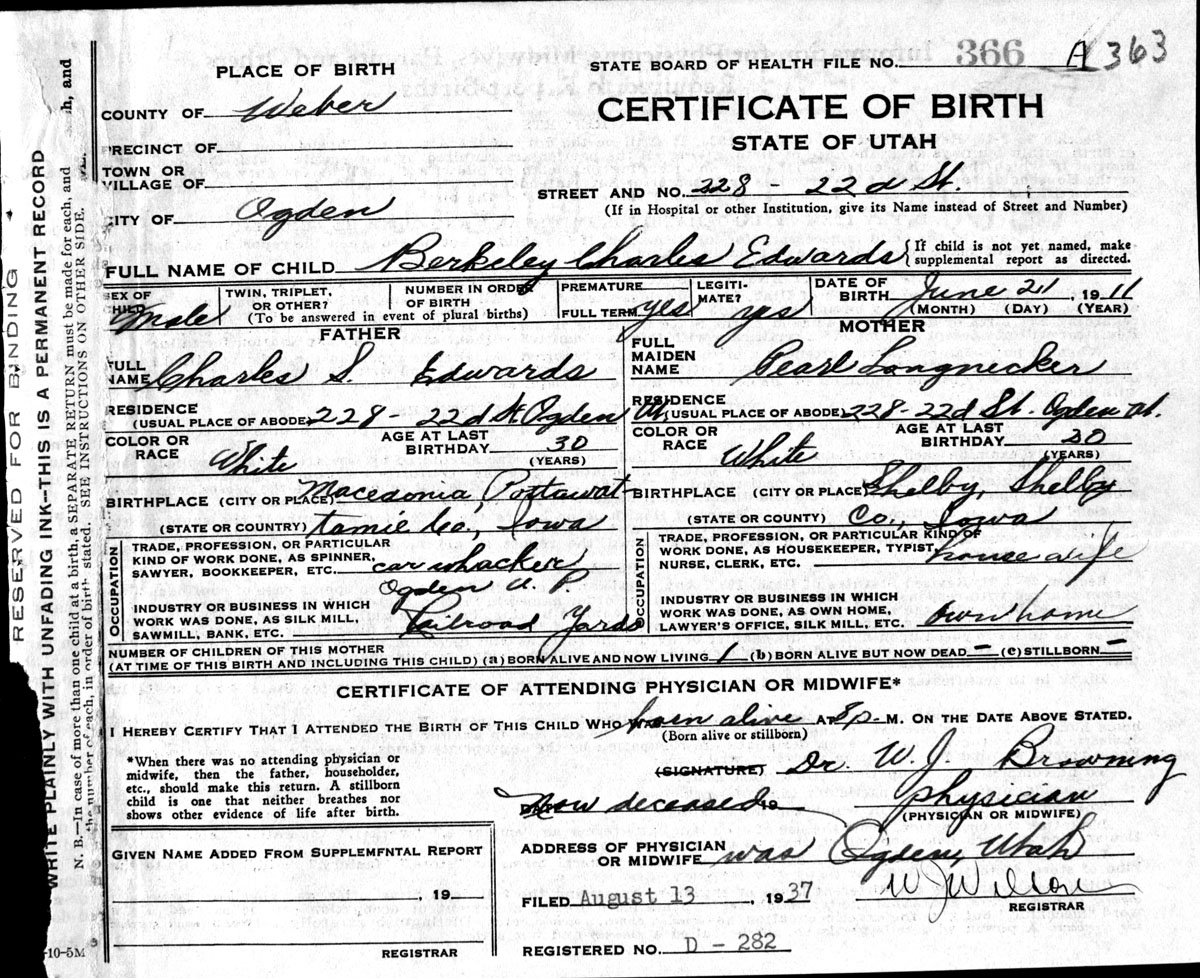 STATE BOARD OF HEALTH FILE NO. 366 A 363
PLACE OF BIRTH
CERTIFICATE OF BIRTH
STATE OF UTAH
COUNTY OF Weber
PRECINCT OF
TOWN OR
VILLAGE OF
CITY OF Ogden
STREET AND NO. 228 - 22d St.
(If in Hospital or other Institution, give its Name instead of Street and Number)
FULL NAME OF CHILD Berkeley Charles Edwards { If child is not yet named, make supplemental report as directed.
SEX OF CHILD Male
TWIN, TRIPLET, OR OTHER?
NUMBER IN ORDER OF BIRTH
(To be answered in event of plural births)
PREMATURE
FULL TERM yes
LEGITIMATE? yes
DATE OF BIRTH June 21, 1911
(MONTH) (DAY) (YEAR)
FATHER
FULL NAME Charles S. Edwards
RESIDENCE
(USUAL PLACE OF ABODE) 228 - 22d St Ogden Ut.
COLOR OR RACE White
AGE AT LAST BIRTHDAY 30
(YEARS)
BIRTHPLACE (CITY OR PLACE) Macedonia, Pottawat-
(STATE OR COUNTRY) tamie Co., Iowa
OCCUPATION
TRADE, PROFESSION, OR PARTICULAR
KIND OF WORK DONE, AS SPINNER,
SAWYER, BOOKKEEPER, ETC. car whacker
Ogden U. P.
INDUSTRY OR BUSINESS IN WHICH
WORK WAS DONE, AS SILK MILL,
SAWMILL, BANK, ETC. Railroad Yards
MOTHER
FULL MAIDEN NAME Pearl Longnecker
RESIDENCE
(USUAL PLACE OF ABODE) 228-22d St. Ogden Ut.
COLOR OR RACE White
AGE AT LAST BIRTHDAY 20
(YEARS)
BIRTHPLACE (CITY OR PLACE) Shelby, Shelby
(STATE OR COUNTY) Co., Iowa
OCCUPATION
TRADE, PROFESSION, OR PARTICULAR KIND OF
WORK DONE, AS HOUSEKEEPER, TYPIST,
NURSE, CLERK, ETC. housewife
INDUSTRY OR BUSINESS IN WHICH
WORK WAS DONE, AS OWN HOME,
LAWYER'S OFFICE, SILK MILL, ETC. own home
NUMBER OF CHILDREN OF THIS MOTHER
(AT TIME OF THIS BIRTH AND INCLUDING THIS CHILD) (a) BORN ALIVE AND NOW LIVING 1 (b) BORN ALIVE BUT NOW DEAD - (c) STILLBORN -
CERTIFICATE OF ATTENDING PHYSICIAN OR MIDWIFE*
I HEREBY CERTIFY THAT I ATTENDED THE BIRTH OF THIS CHILD WHO WAS born alive AT 8 p. M. ON THE DATE ABOVE STATED.
(Born alive or stillborn)
*When there was no attending physician or
midwife, then the father, householder,
etc., should make this return. A stillborn
child is one that neither breathes nor
shows other evidence of life after birth.
(SIGNATURE) Dr. W. J. Browning
DATE Now deceased 19 physician
(PHYSICIAN OR MIDWIFE)
ADDRESS OF PHYSICIAN
OR MIDWIFE was Ogden, Utah
GIVEN NAME ADDED FROM SUPPLEMENTAL REPORT
, 19
REGISTRAR
FILED August 13, 1937
REGISTRAR
REGISTERED NO. D - 282
RESERVED FOR BINDING
WRITE PLAINLY WITH UNFADING INK--THIS IS A PERMANENT RECORD
N. B.--In case of more than one child at a birth, a SEPARATE RETURN must be made for each, and
the number of each, in order of birth stated. SEE INSTRUCTIONS ON OTHER SIDE.
-10-5M